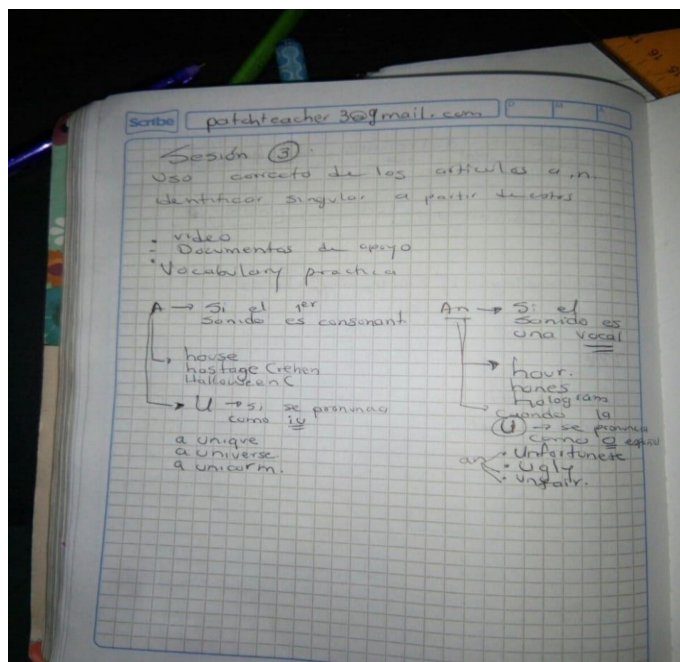 Scribe
patchteacher3@gmail.com
Sesión 3.
Uso correcto de los articulos a, n.
Identificar singular a partir de estos
• video
- Documentos de apoyo
• Vocabulary practica
A → Si el 1er
sonido es consonant.
house
hostage
Halloween
U → si se pronuncia
como iu
a unique
a universe
a unicorm.
An → Si el
sonido es
una vocal
hour.
hones
hologram
Cuando la
U → se pronuncia
como a español
an
• Unfortunete
• Ugly
• unfair.